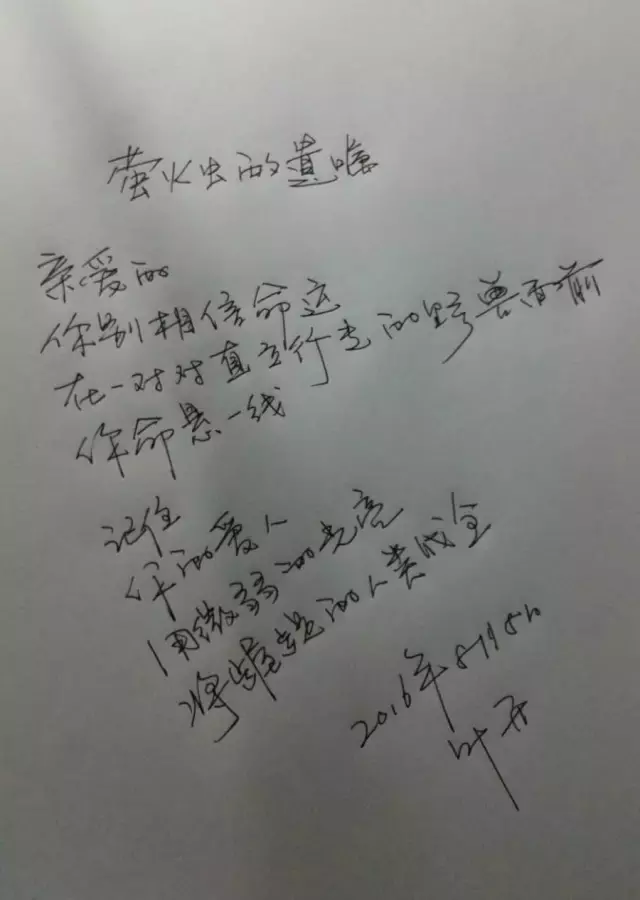 萤火虫的遗嘱
亲爱的
你别相信命运
在一对对直立行走的野兽面前
你命悬一线
记住
你的爱人
用微弱的光亮
将的人类成全
2016年8月8日
叶开